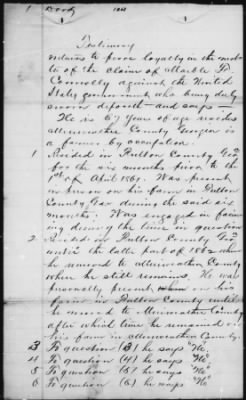 Testimony
relative to force loyalty in the mat
ter of the claim of Marble D.
Connolly against the United
States government who being duly
sworn deposeth and says
He is 67 years of age resides
County Georgia is
a farmer by occupation.
1 Resided in Fulton County Geo
for the six months prior to the
1st of April 1861. Was present
in person on his farm in Fulton
County Geo during the said six
months. Was engaged in farm
ing during the time in question
2 Resided in Fulton County Geo
until the latter part of 186 when
he removed to County
where he still remains. He was
personally present on his
farm in Fulton County until
he moved to County
after which time he remained on
his farm in County.
3 To question (3) he says "No".
4 To question (4) he says "No".
5 To question (5) he says "No".
6 To question (6) he says "No".